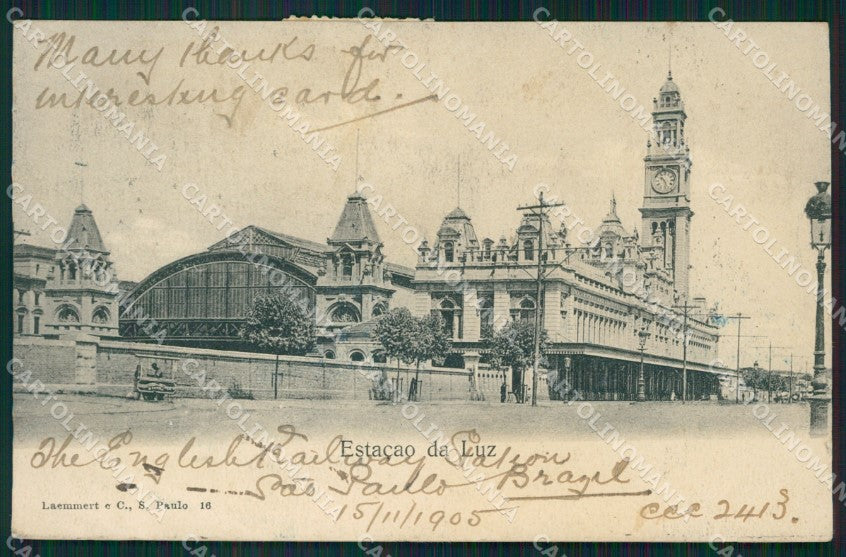 Many thanks for
interesting card.
Estaçao da Luz
The English Railway Station
Sao Paulo Brazil
15/11/1905
ccc 2413.
Laemmert e C., S. Paulo 16
CARTOLINOMANIA